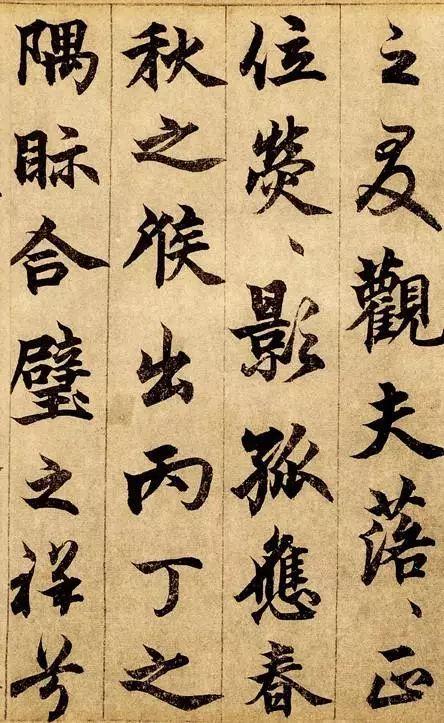 之爰觀夫落、正
位熒、影孤應春
秋之候出丙丁之
隅眎合璧之祥兮